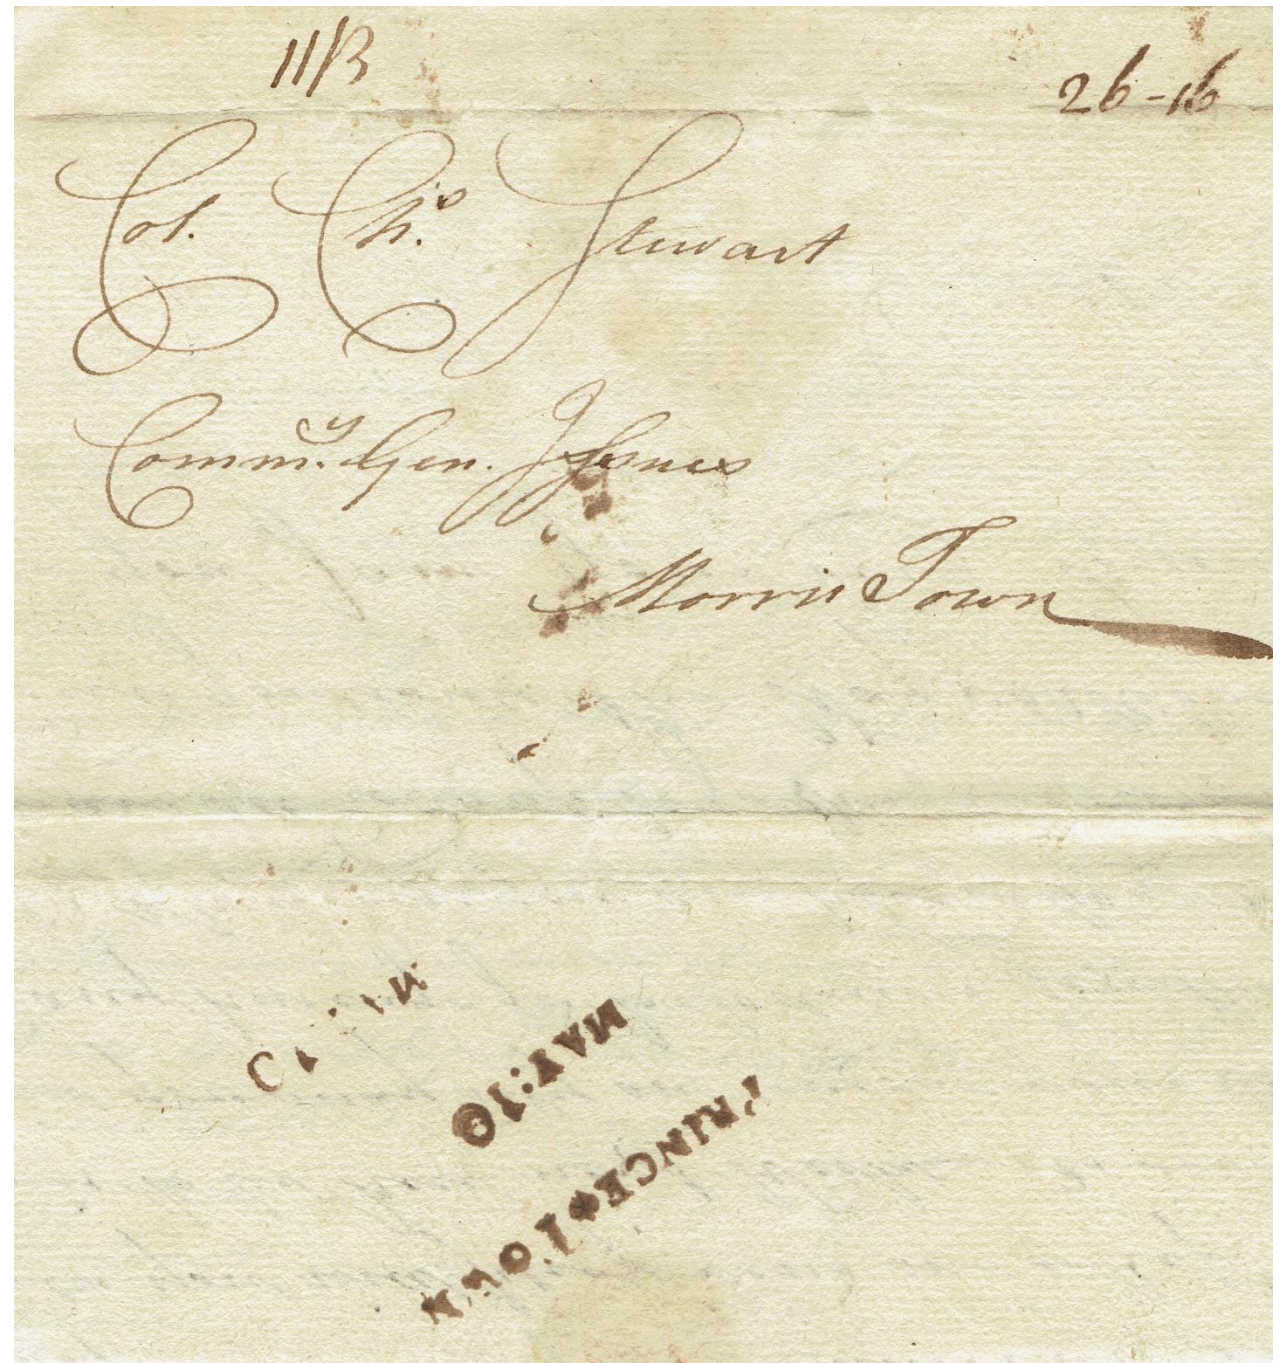 11/3
26-16
Col. Chs. Stewart
Commy. Gen. Issues
Morris Town
MAY:10
PRINCE*TOWN